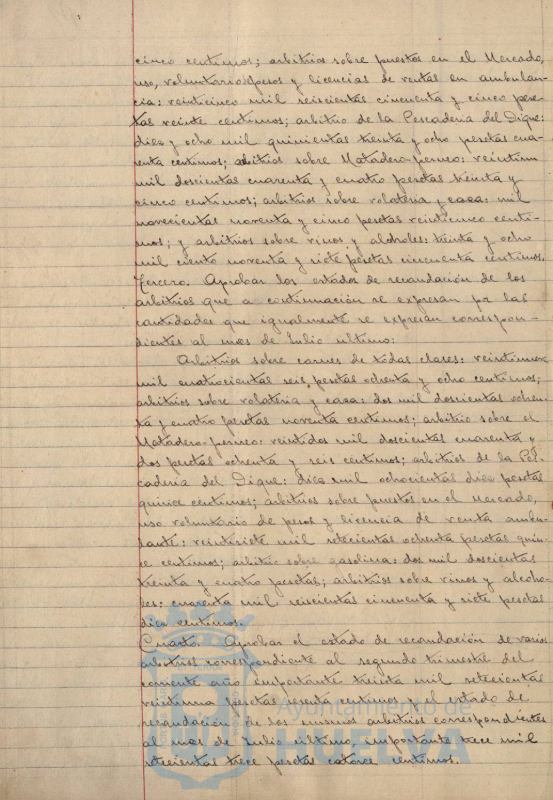 cinco centimos; arbitrios sobre puestos en el Mercado,
uso, voluntario pesos y licencias de ventas en ambulan-
cia: veinticinco mil seiscientas cincuenta y cinco pese-
tas veinte centimos; arbitrio de la Pescaderia del Dique:
diez y ocho mil quinientas treinta y ocho pesetas cua-
renta centimos; abitrios sobre Matadero-perneo:
mil doscientas cuarenta y cuatro pesetas treinta y
cinco centimos; arbitrios sobre volateria y caza: mil
novecientas noventa y cinco pesetas veinticinco centi-
mos; y arbitrios sobre vinos y alcholes: treinta y ocho
mil ciento noventa y siete pesetas cincuenta centimos.
Tercero. Aprobar los estados de recaudación de los
arbitrios que a continuación se expresan por las
cantidades que igualmente se expresan correspon-
dientes al mes de Julio ultimo:
Arbitrios sobre carnes de todas clases:
mil cuatrocientas seis pesetas ochenta y ocho centimos;
arbitrios sobre volateria y caza: dos mil doscientas ochen-
ta y cuatro pesetas noventa centimos; arbitrio sobre el
Matadero-perneo: veintidos mil doscientas cuarenta y
dos pesetas ochenta y seis centimos; arbitrios de la Pes-
caderia del Dique: diez mil ochocientas diez pesetas
quince centimos; arbitrios sobre puestos en el Mercado,
uso voluntario de pesos y licencia de venta ambu-
lante: veintisiete mil setecientas ochenta pesetas quin-
ce centimos; arbitrio sobre gasolina: dos mil doscientas
treinta y cuatro pesetas; arbitrios sobre vinos y alcoho-
les: cuarenta mil seiscientas cincuenta y siete pesetas
diez centimos.
Cuarto. Aprobar el estado de recaudación de varios
arbitrios correspondiente al segundo trimestre del
corriente año importante treinta mil setecientas
veintiuna pesetas centimos y el estado de
recaudación de los mismos arbitrios correspondientes
al mes de Julio último, importante trece mil
setecientas trece pesetas catorce centimos.
Ayuntamiento de
HUELVA